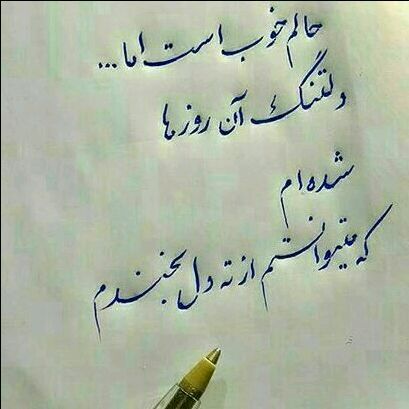 حالم خوب است اما...
دلتنگ آن روزها
شده ام
که میتوانستم از ته دل بخندم